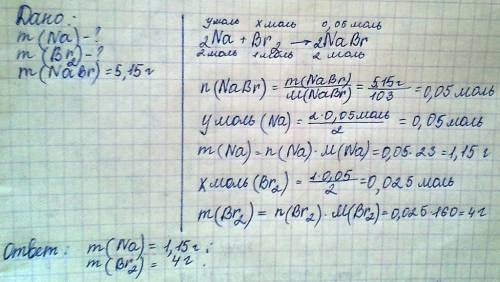 Дано:
m(Na)-?
m(Br₂)-?
m(NaBr)=5,15г
y моль x моль 0,05 моль
2Na + Br₂ → 2NaBr
2 моль 1 моль 2 моль
n(NaBr) = m(NaBr)/M(NaBr) = 5,15г/103 = 0,05 моль
y моль (Na) = 2·0,05 моль/2 = 0,05 моль
m(Na)=n(Na)·M(Na)=0,05·23=1,15г
x моль (Br₂) = 1·0,05/2 = 0,025 моль
m(Br₂) = n(Br₂)·M(Br₂)=0,025·160=4г
Ответ: m(Na)=1,15г;
m(Br₂) = 4г.